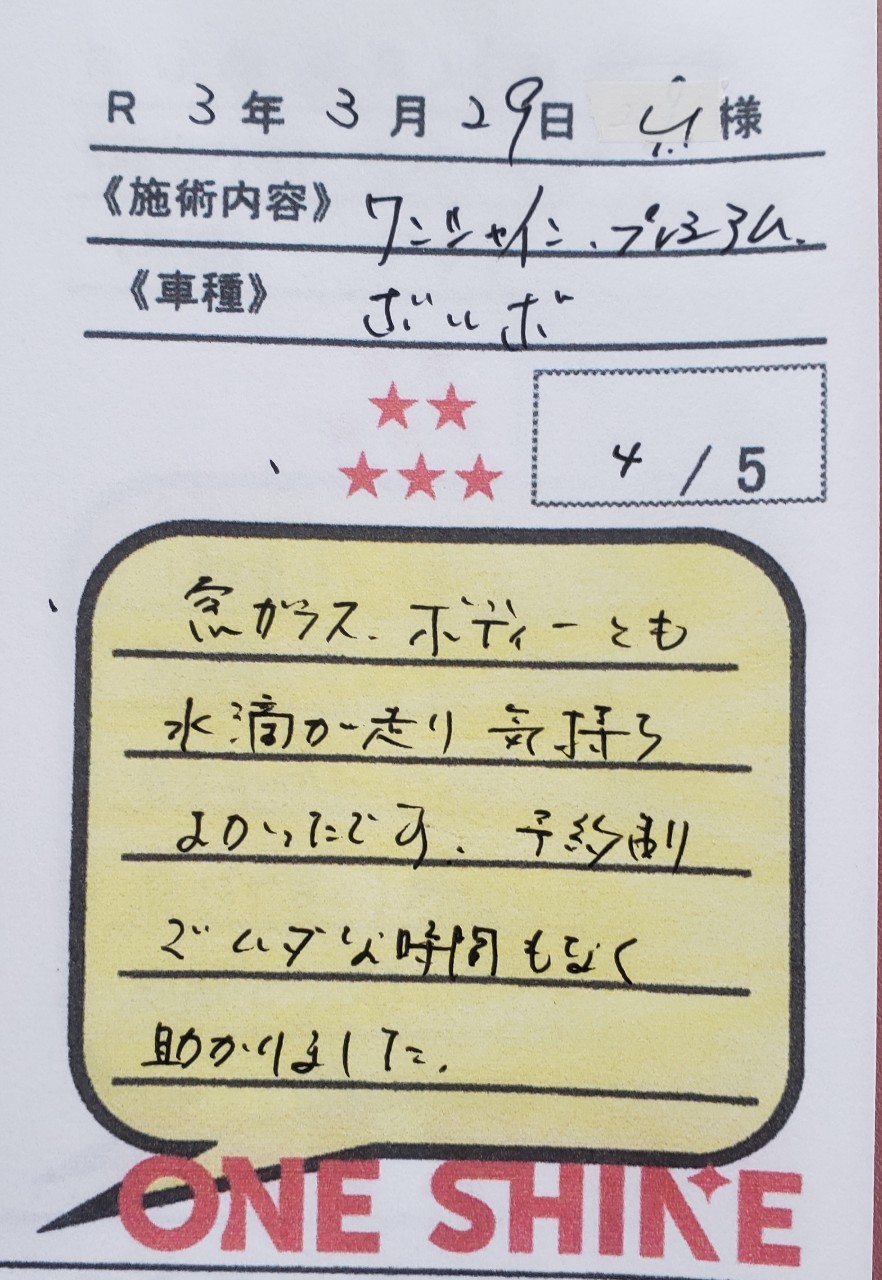 R 3年3月29日 様
《施術内容》 ワンシャイン、プレミアム、
《車種》 ボルボ
4 / 5
窓ガラス、ボディーとも
水滴が走り 気持ち
よかったです。予約割り
でムダな時間もなく
助かりました。
ONE SHINE